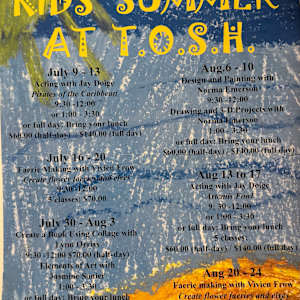 KIDS SUMMER
AT T.O.S.H.
July 9 - 13
Acting with Jay Doige
Pirates of the Caribbean
9:30-12:00
or 1:00 - 3:30
or full day: Bring your lunch
$60.00 (half-day) $140.00 (full day)
July 16 - 20
Faerie Making with Vivien Frow
Create flower faeries and elves
9:30-12:00
5 classes: $70.00
July 30 - Aug 3
Create a Book Using Collage with
Lynn Orriss
9:30 -12:00 $70.00 (half-day)
Elements of Art with
Jasmine
1:00 - 3:30
or full day: Bring your lunch
Aug.6 - 10
Design and Painting with
Norma Emerson
9:30-12:00
Drawing and 3-D Projects with
Norma Emerson
1:00 - 3:30
or full day: Bring your lunch
$60.00 (half-day) $130.00 (full day)
Aug 13 to 17
Acting with Jay Doige
9:30 -12:00
or 1:00 - 3:30
or full day: Bring your lunch
5 classes:
$60.00 (half-day) $140.00 (full day)
Aug 20 - 24
Faerie making with Vivien Frow
Create flower faeries and elves